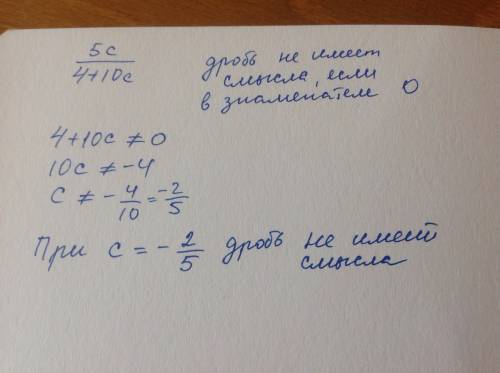 5c
4+10c
дробь не имеет
смысла, если
в знаменателе 0
4+10c ≠ 0
10c ≠ -4
c ≠ - 4/10 = -2/5
При c = - 2/5 дробь не имеет
смысла